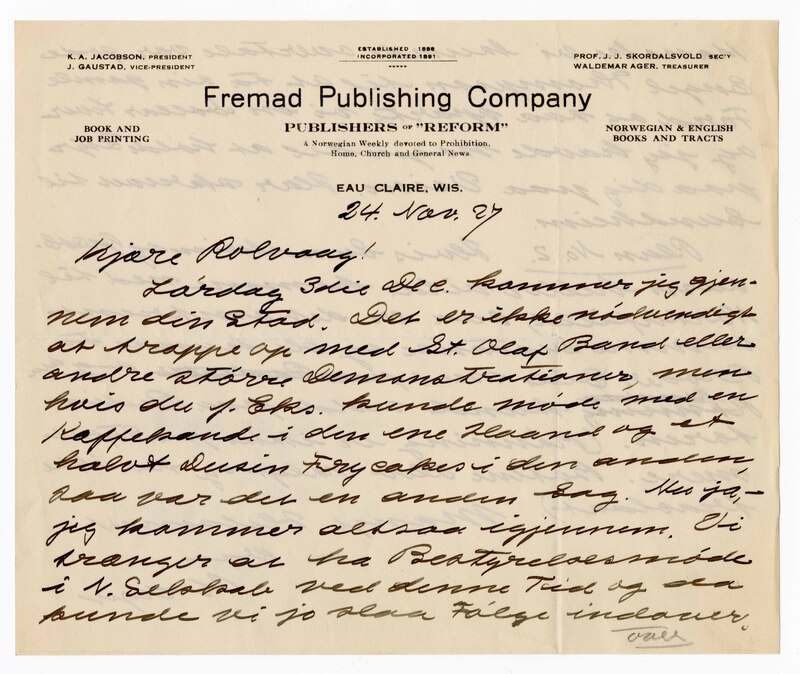 K. A. JACOBSON, PRESIDENT
J. GAUSTAD, VICE-PRESIDENT
ESTABLISHED 1886
INCORPORATED 1891
PROF. J. J. SKORDALSVOLD SEC'Y
WALDEMAR AGER, TREASURER
Fremad Publishing Company
BOOK AND
JOB PRINTING
PUBLISHERS OF "REFORM"
A Norwegian Weekly devoted to Prohibition,
Home, Church and General News
NORWEGIAN & ENGLISH
BOOKS AND TRACTS
EAU CLAIRE, WIS.
24. Nov. 27
Kjære Rolvaag!
Lørdag 3die Dec. kommer jeg gjen-
nem din Stad. Det er ikke nødvendigt
at troppe op med St. Olaf Band eller
andre större Demonstrationer, men
hvis du f. Eks. kunde møde med en
Kaffekande i den ene Haand og et
halvt Dusin Frycakes i den anden,
saa var det en anden Sag. Nu ja,—
jeg kommer altsaa igjennem. Vi
trænger at ha Bestyrelsesmøde
i N. Selskab ved denne Tid og da
kunde vi jo slaa Følge indover.
over